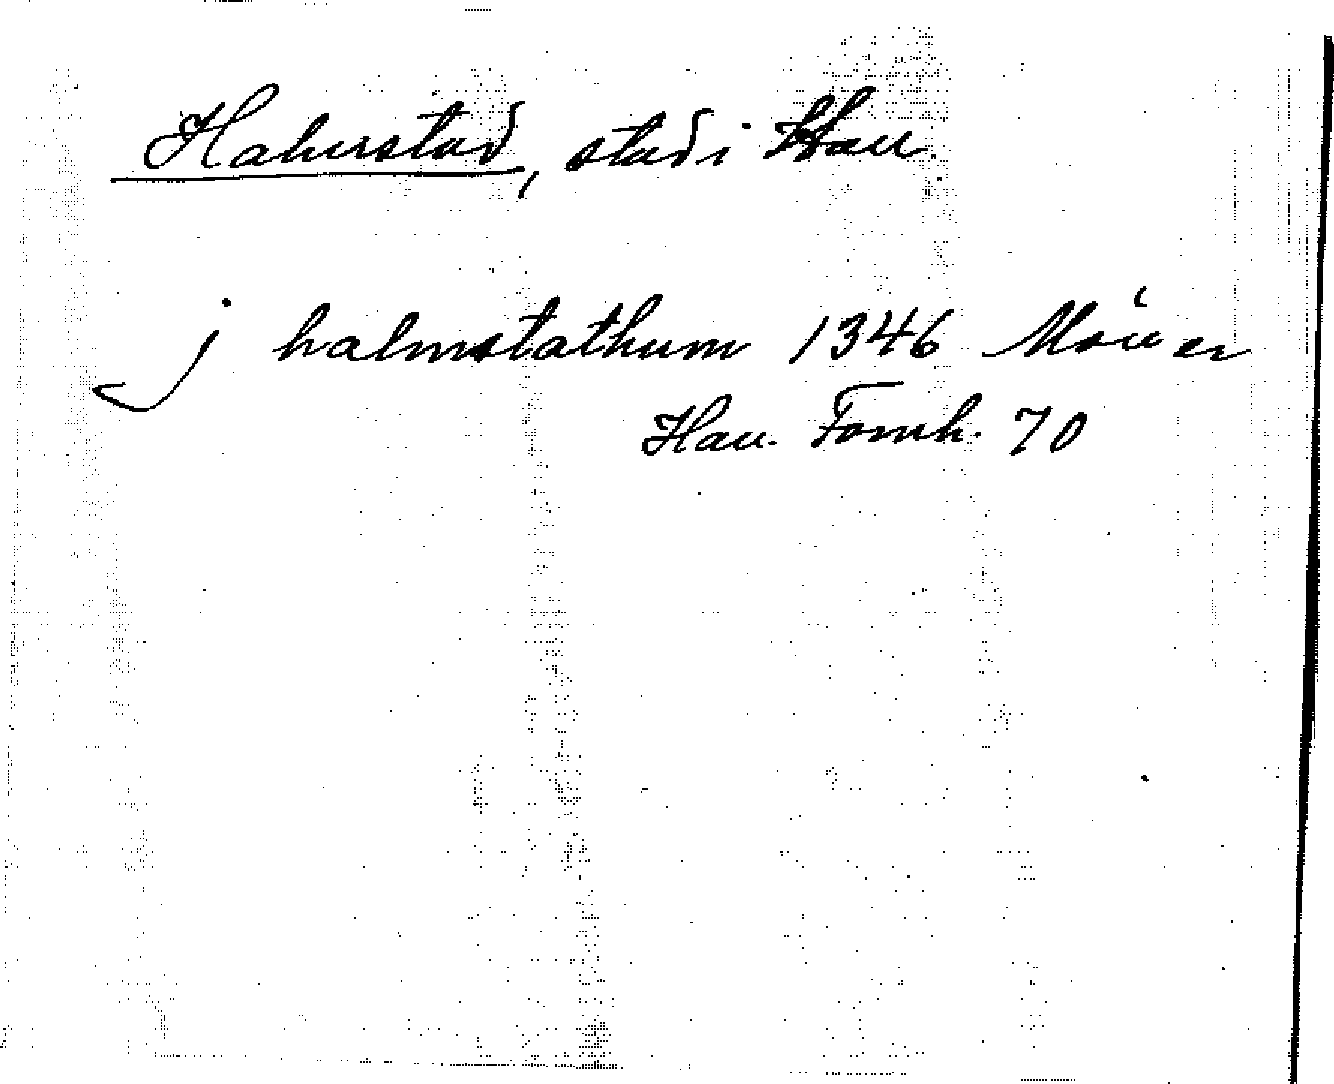 Halmstad, stad i Hall.
j halmstathum 1346 Möller
Hall. Fornh. 70